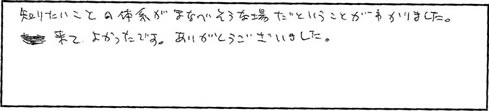 知りたいことの体系がまなべそうな場だということがわかりました。
来てよかったです。ありがとうございました。